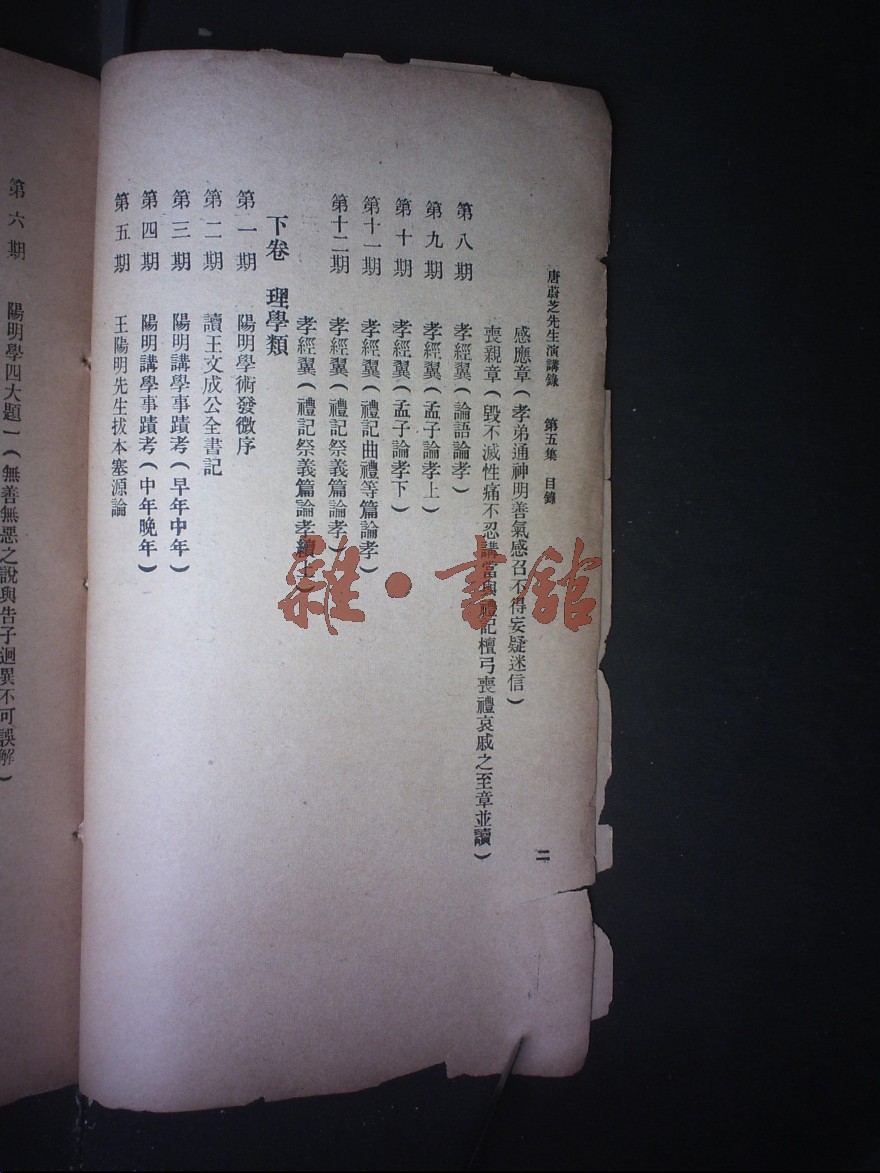 唐蔚芝先生演講錄 第五集 目錄 二
感應章(孝弟通神明善氣感召不得妄疑迷信)
喪親章(毀不滅性痛不忍講當與禮記檀弓喪禮哀戚之至章並讀)
第八期 孝經翼(論語論孝)
第九期 孝經翼(孟子論孝上)
第十期 孝經翼(孟子論孝下)
第十一期 孝經翼(禮記曲禮等篇論孝)
第十二期 孝經翼(禮記祭義篇論孝)
孝經翼(禮記祭義篇論孝續上)
下卷 理學類
第一期 陽明學術發微序
第二期 讀王文成公全書記
第三期 陽明講學事蹟考(早年中年)
第四期 陽明講學事蹟考(中年晚年)
第五期 王陽明先生拔本塞源論
第六期 陽明學四大題一(無善無惡之說與告子迥異不可誤解)
雜·書館